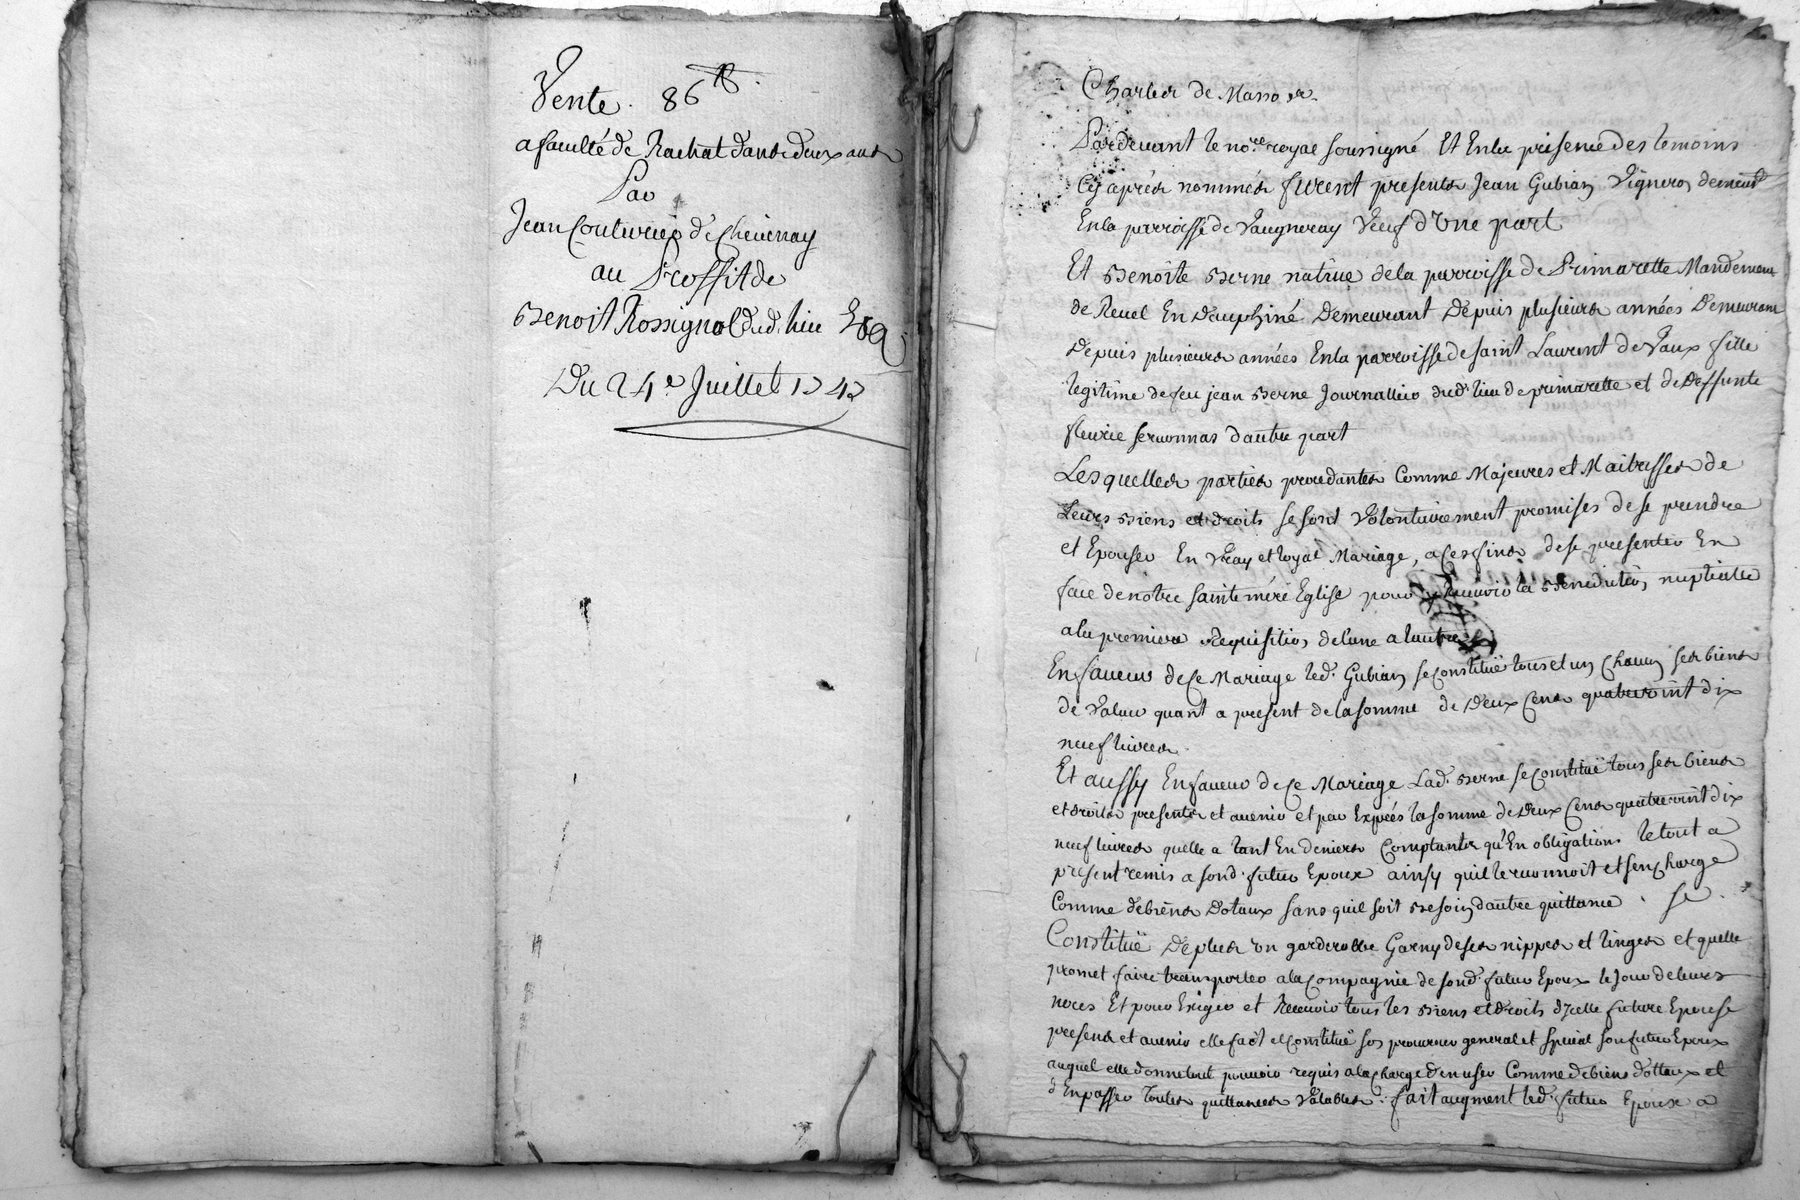 Vente. 86 lt.
a faculté de Rachat dans deux ans
Par
Jean Couturier de Chevenay
au Proffit de
Benoit Rossignol dud. lieu
Du 24e Juillet 1747
Par devant le nore. royal soussigné Et En la presence des temoins
Cy aprés nommés furent presents Jean Gubian Vigneron demeurt
En la parroisse de Vaugneray Veuf d'Une part
Et Benoite Berne native de la parroisse de Primarette Mandement
de Revel En Dauphiné Demeurant Depuis plusieurs années Demeurant
Depuis plusieurs années En la parroisse de Saint Laurent de Vaux fille
legitime de feu jean Berne Journallier dud. lieu de primarette et de Deffunte
fleurie d'autre part
Lesquelles parties procedantes Comme Majeures et Maitresses de
Leurs Biens et droits se sont Volontairement promises de se prendre
et Epouser En Vray et loyal Mariage, a ces fins de se presenter En
face de nôtre sainte mére Eglise pour y recevoir la Benediction nuptialle
a la premiere Requisition de l'une a l'autre
En faveur de Ce Mariage led. Gubian se Constitüe tous et un Chacun ses biens
de Valeur quant a present de la somme de Deux Cens quatrevint dix
neuf livres.
Et aussy En faveur de Ce Mariage Lad. Berne se Constitüe tous ses biens
et droits presents et avenir et par Exprés la somme de Deux Cens quatrevint dix
neuf livres quelle a tant En deniers Comptants qu'En obligations le tout a
present remis a sond. futur Epoux ainsy quil le reconnoit et s'en Charge
Comme de biens Dotaux sans quil soit Besoin d'autre quittance. se
Constitüe De plus un garderobbe Garny de ses nippes et linges et quelle
promet faire transporter a la Compagnie de sond. futur Epoux le Jour de leurs
noces Et pour Exiger et Recevoir tous les Biens et droits d'Icelle future Epouse
presens et avenir elle fait et Constitüe son procureur general et special son futur Epoux
auquel elle donne tout pouvoir requis a la Charge d'en user Comme de biens dottaux et
d'En passer Toutes quittances Valables. fait augment led. futur Epoux a